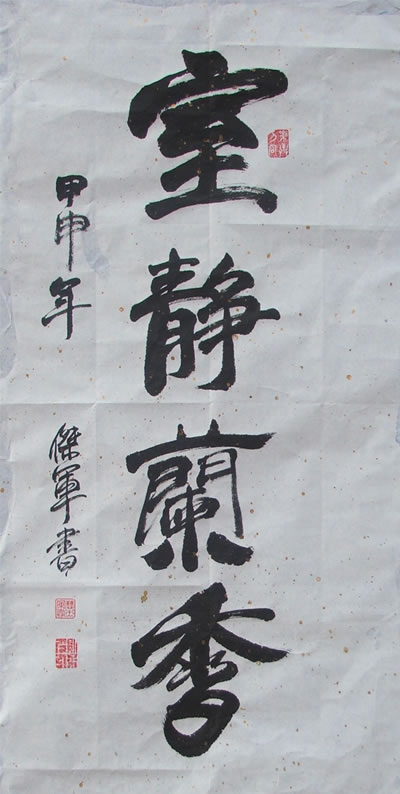 室靜蘭香
甲申年
傑軍書